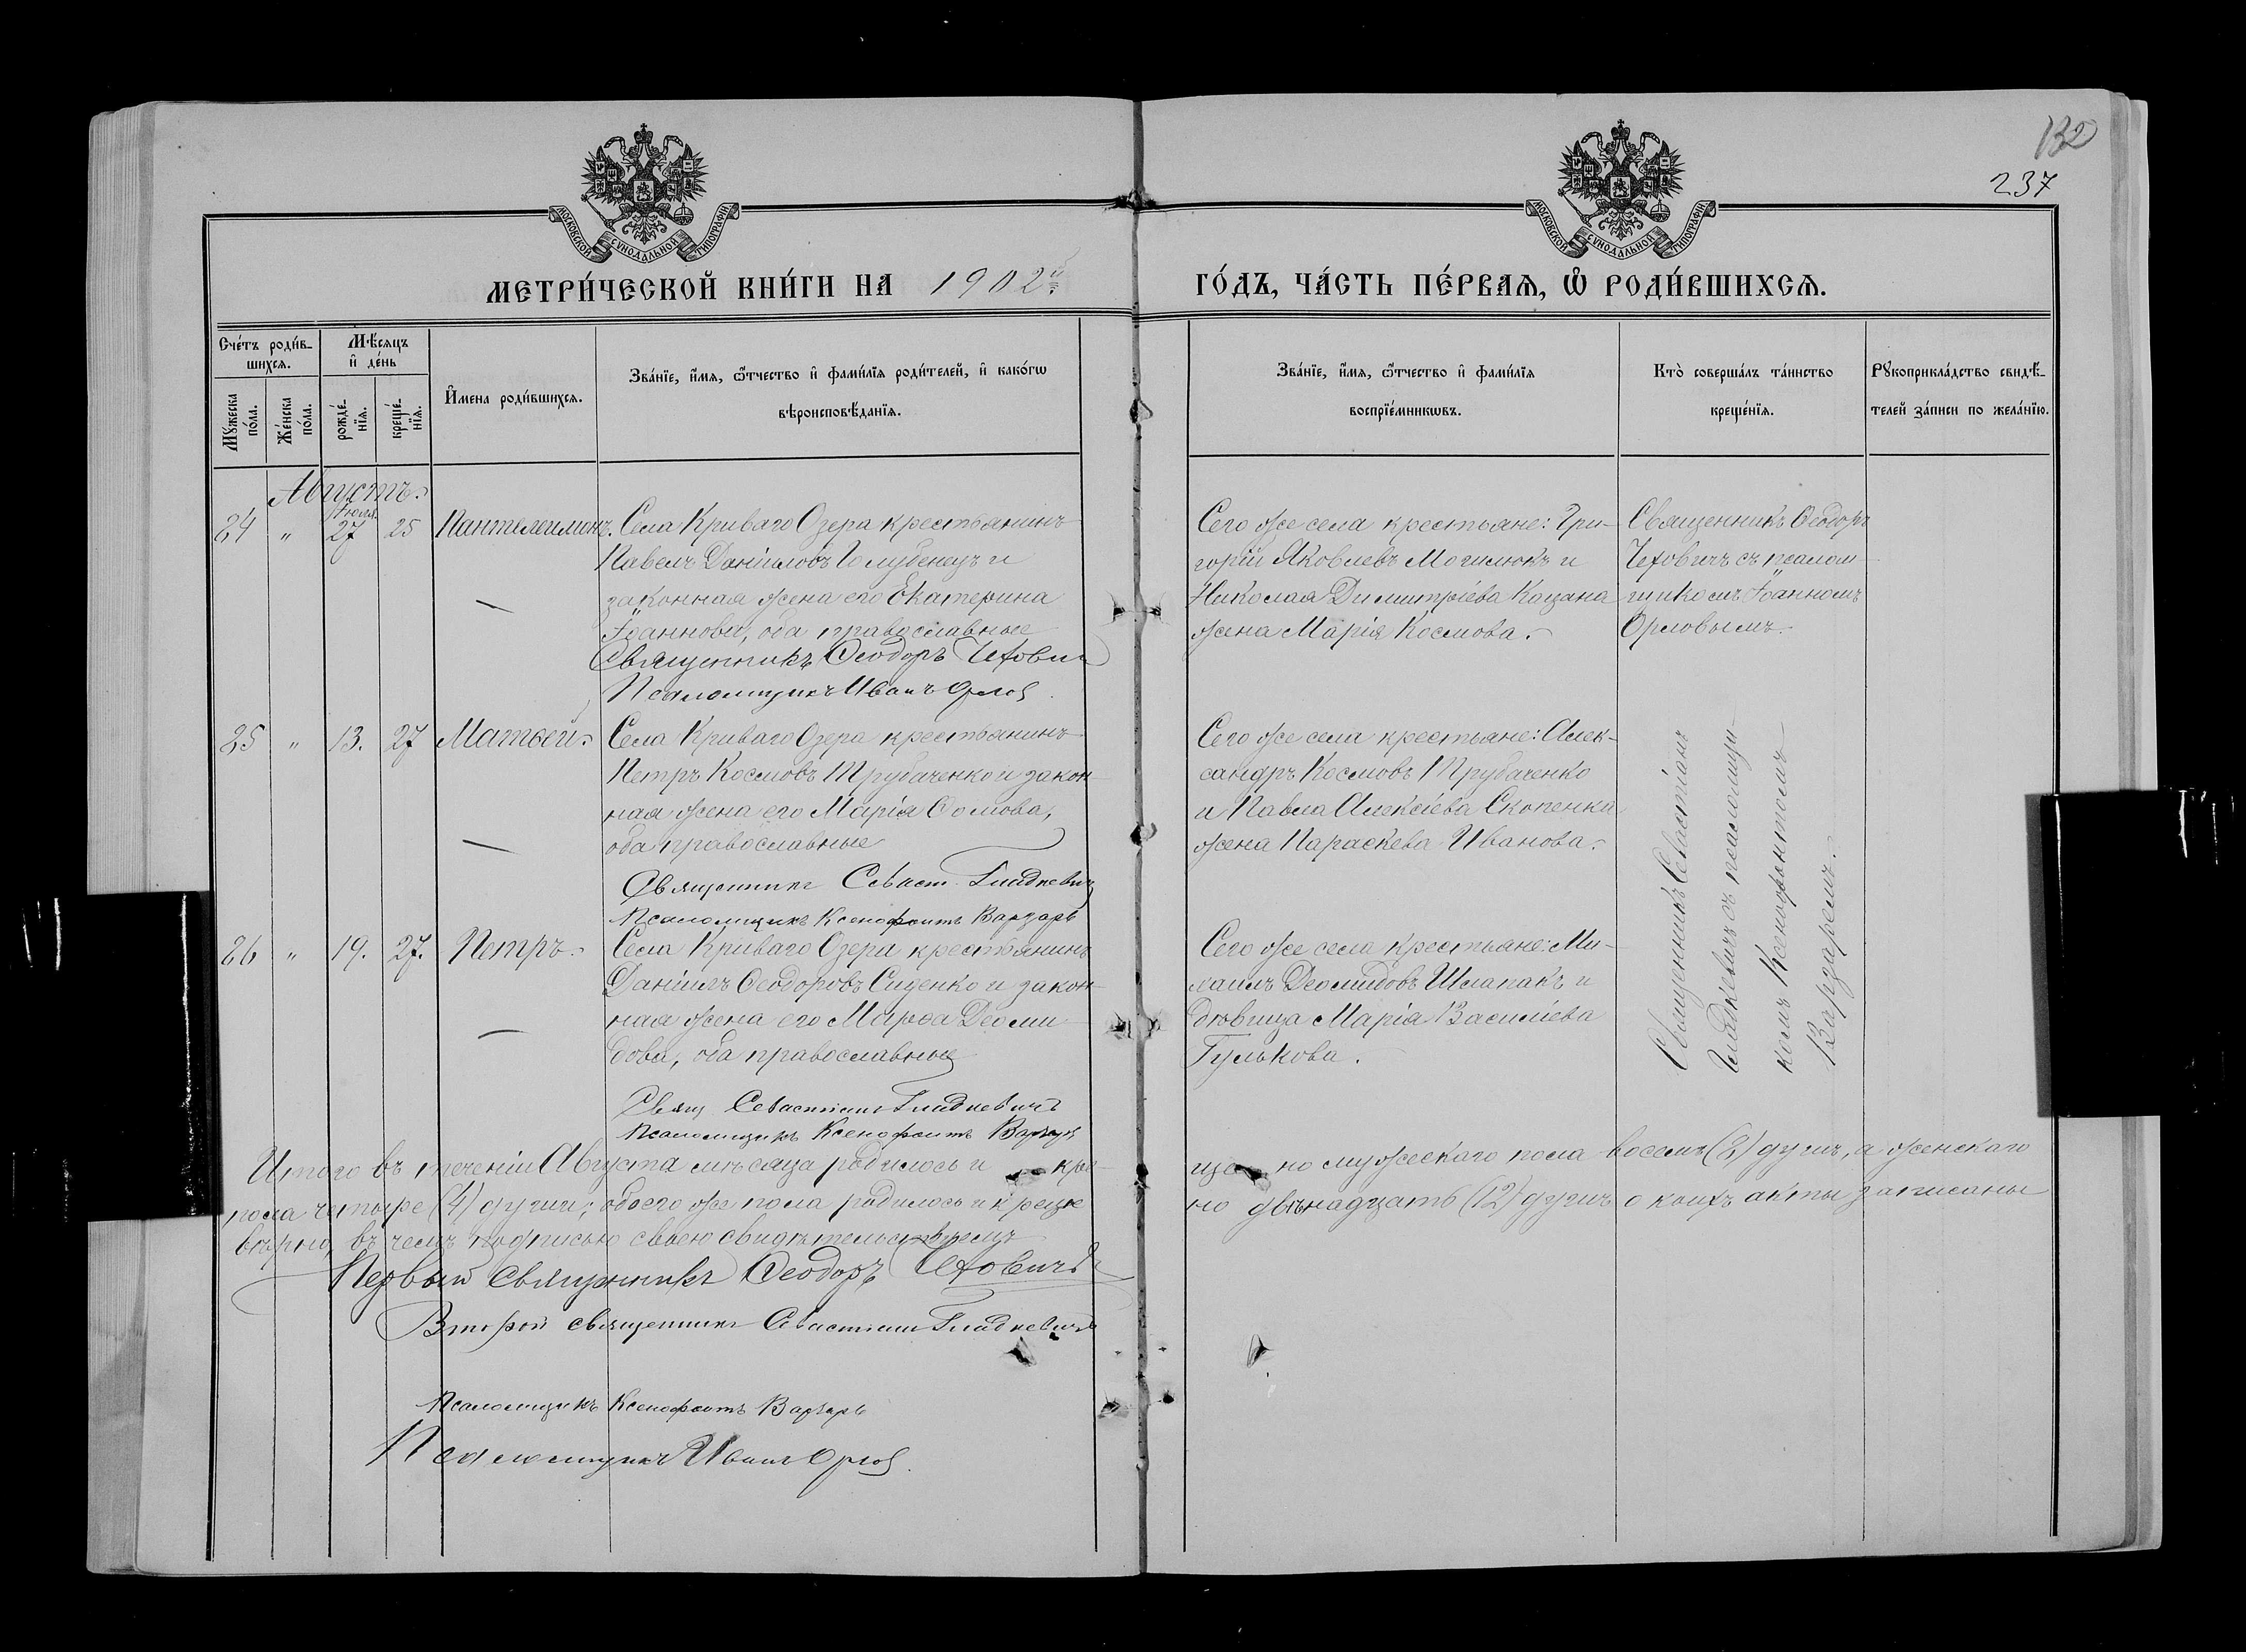 132
237
МОСКОВСКОЙ СѴНОДАЛЬНОЙ ТИПОГРАФІИ
МОСКОВСКОЙ СѴНОДАЛЬНОЙ ТИПОГРАФІИ
МЕТРИ́ЧЕСКОЙ КНИ́ГИ НА 1902й ГО́ДЪ, ЧА́СТЬ ПЕ́РВАѦ, Ѡ҆ РОДИ́ВШИХСѦ.
Сче́тъ роди́в-
шихсѧ.
Мꙋ́жеска по́ла.
Же́нска по́ла.
Мѣ́сѧцъ
и҆ де́нь
рожде́-
нїѧ.
креще́-
нїѧ.
И҆мена роди́вшихсѧ.
Зва́нїе, и҆́мѧ, ѻ҆́тчество и҆ фами́лїѧ роди́телей, и҆ како́гѡ
вѣроисповѣ́данїѧ.
Зва́нїе, и҆́мѧ, ѻ҆́тчество и҆ фами́лїѧ
воспрїе́мникѡвъ.
Кто̀ соверша́лъ та́инство
креще́нїѧ.
Рꙋкоприкла́дство свидѣ́-
телей за́писи по жела́нїю.
Августъ.
24 " Іюля 27 25 Пантелеимонъ. Села Криваго Озера крестьянинъ
Павелъ Даніиловъ Голубенецъ и
законная жена его Екатерина
Іоаннова, оба православные
Священникъ Ѳеодоръ Чехович
Псаломщикъ Иванъ Орлов
Сего же села крестьяне: Гри-
горій Яковлевъ Могилюкъ и
Николая Димитріева Кацана
жена Марія Космова.
Священникъ Ѳеодоръ
Чеховичъ съ псалом-
щикомъ Іоанномъ
Орловымъ.
25 " 13. 27 Матѳей. Села Криваго Озера крестьянинъ
Петръ Космовъ Трубаченко и закон-
ная жена его Марія Ѳомова,
оба православные
Священникъ Севаст. Гладкевичъ
Псаломщикъ Ксенофонтъ Варзарь
Сего же села крестьяне: Алек-
сандръ Космовъ Трубаченко
и Павла Алексіева Скопенка
жена Параскева Иванова.
26 " 19. 27. Петръ. Села Криваго Озера крестьянинъ
Даніилъ Ѳеодоровъ Сиденко и закон-
ная жена его Марѳа Деоми-
дова, оба православные
Свящ Севастіанъ Гладкевичъ
Псаломщикъ Ксенофонтъ Варзарь
Сего же села крестьяне: Ми-
хаилъ Деомидовъ Шлапакъ и
дѣвица Марія Василіева
Гулькова.
Священникъ Севастіанъ
Гладкевичъ съ псаломщи-
комъ Ксенофонтомъ
Варзаремъ.
Итого въ теченіи Августа мѣсяца родилось и кре-
щено мужескаго пола восемь (8) душъ, а женскаго
пола четыре (4) души; обоего же пола родилось и креще
но двѣнадцать (12) душъ о коихъ акты записаны
вѣрно, въ чемъ подписью своею свидѣтельствуемъ
Первый Священникъ Ѳеодоръ Чеховичъ
Второй священникъ Севастіанъ Гладкевичъ
Псаломщикъ Ксенофонтъ Варзарь
Псаломщикъ Иванъ Орлов.